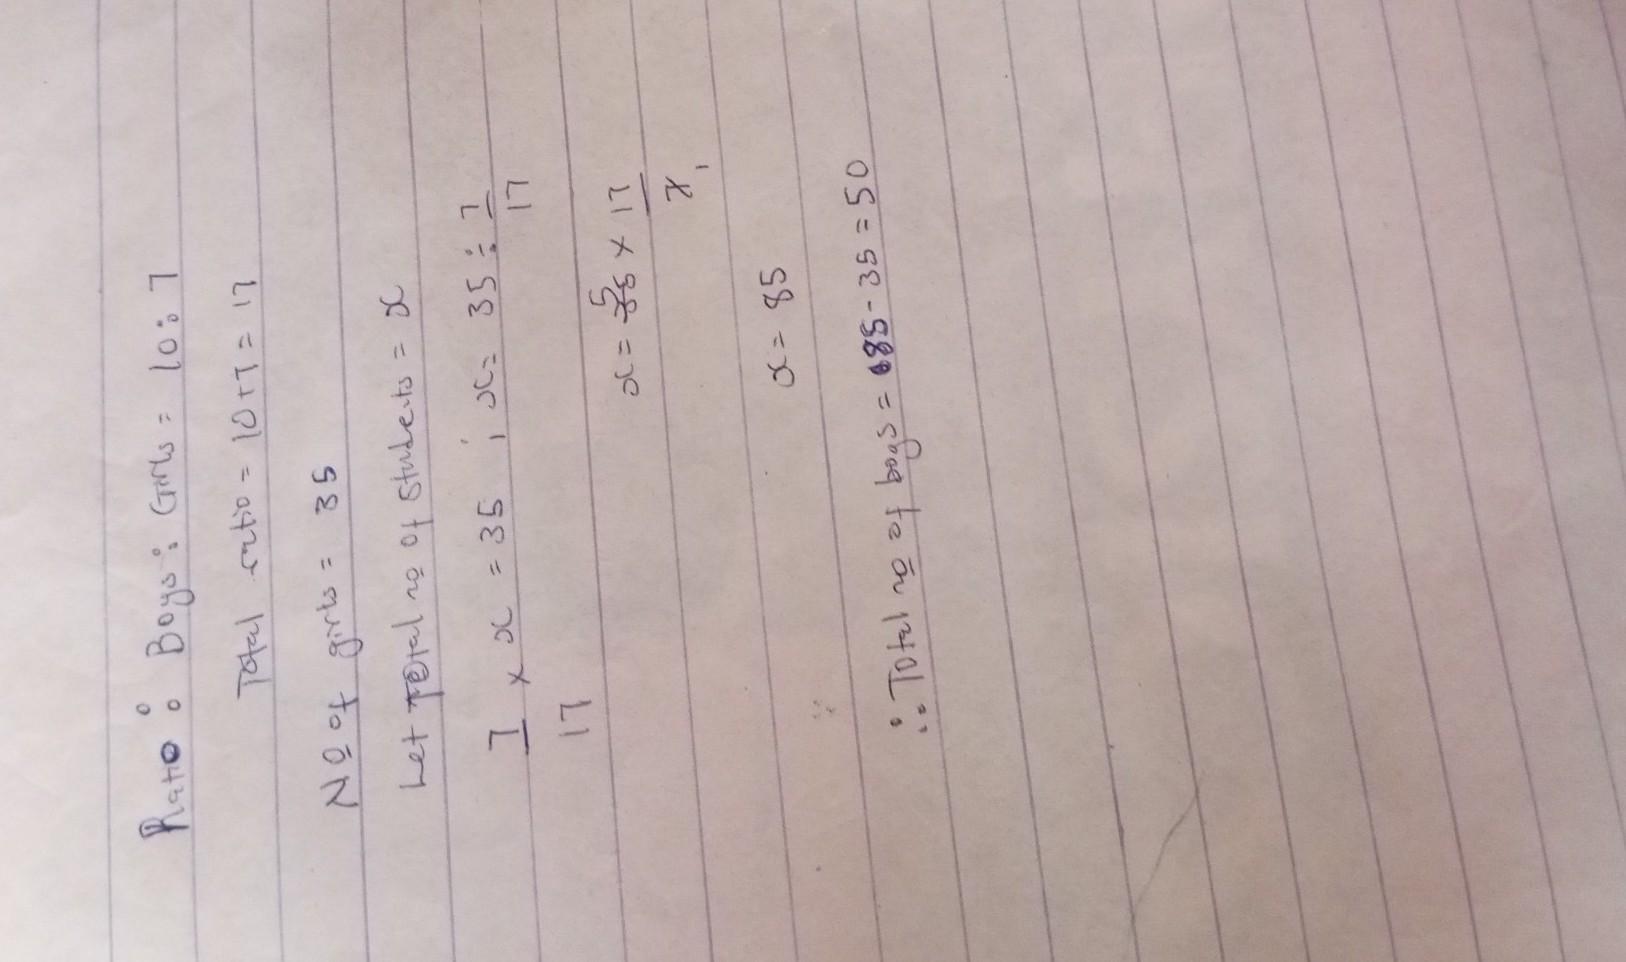 Ratio: Boys: Girls = 10:7
Total ratio = 10+7 = 17
No of girls = 35
Let Total no of students = x
7/17 × x = 35 ; x = 35 ÷ 7/17
x = 35 5 × 17/7 1
x = 85
∴ Total no of boys = 85 - 35 = 50